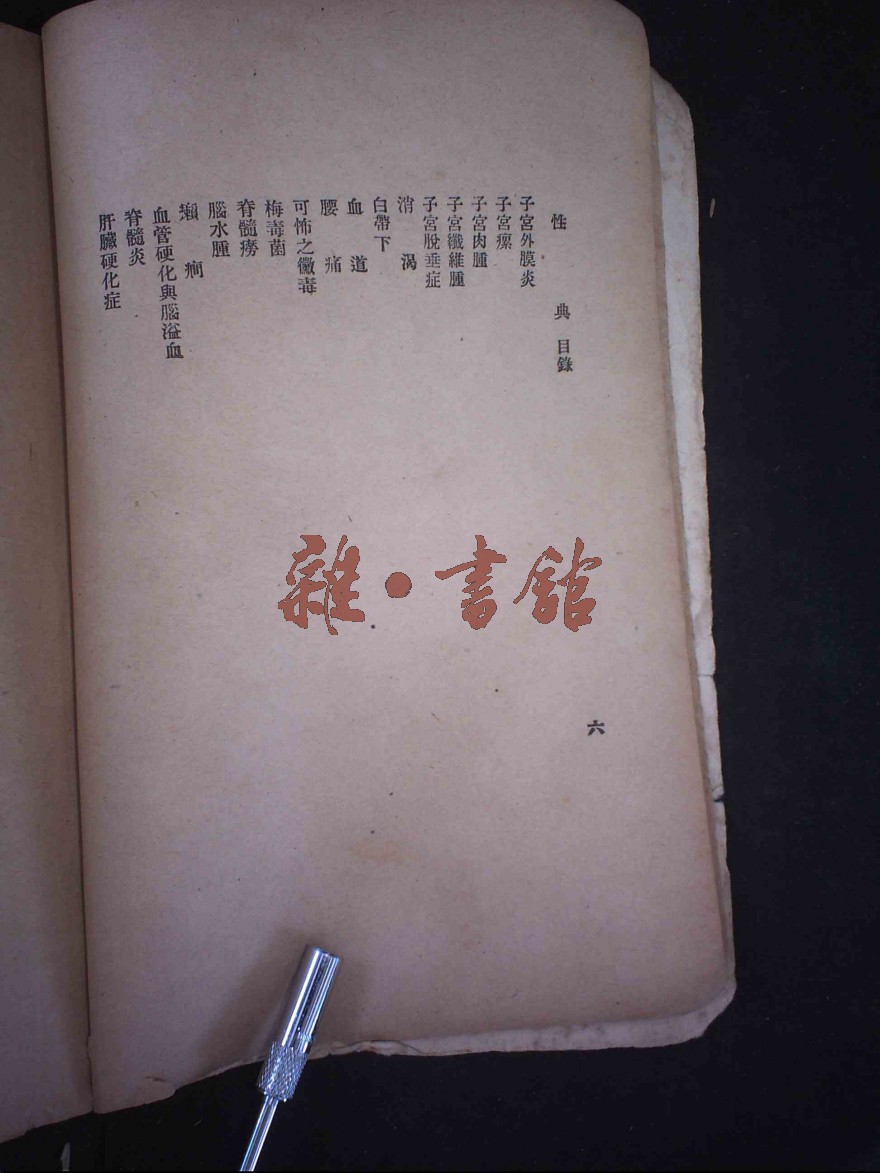 性典 目錄
子宮外膜炎
子宮瘰
子宮肉腫
子宮纖維腫
子宮脫垂症
消渴
白帶下
血道
腰痛
可怖之黴毒
梅毒菌
脊髓癆
腦水腫
癩癇
血管硬化與腦溢血
脊髓炎
肝臟硬化症
六
雜·書館